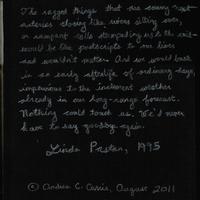 The ragged things that are coming next
arteries closing like rivers silting over,
or rampant cells stampeding us to the exit—
would be like postscripts to our lives
and wouldn't matter. And we would bask
in an early afterlife of ordinary days,
impervious to the inclement weather
already in our long-range forecast.
Nothing could touch us. We'd never
have to say goodbye again.
Linda Pastan, 1995
© Andrea C. August 2011